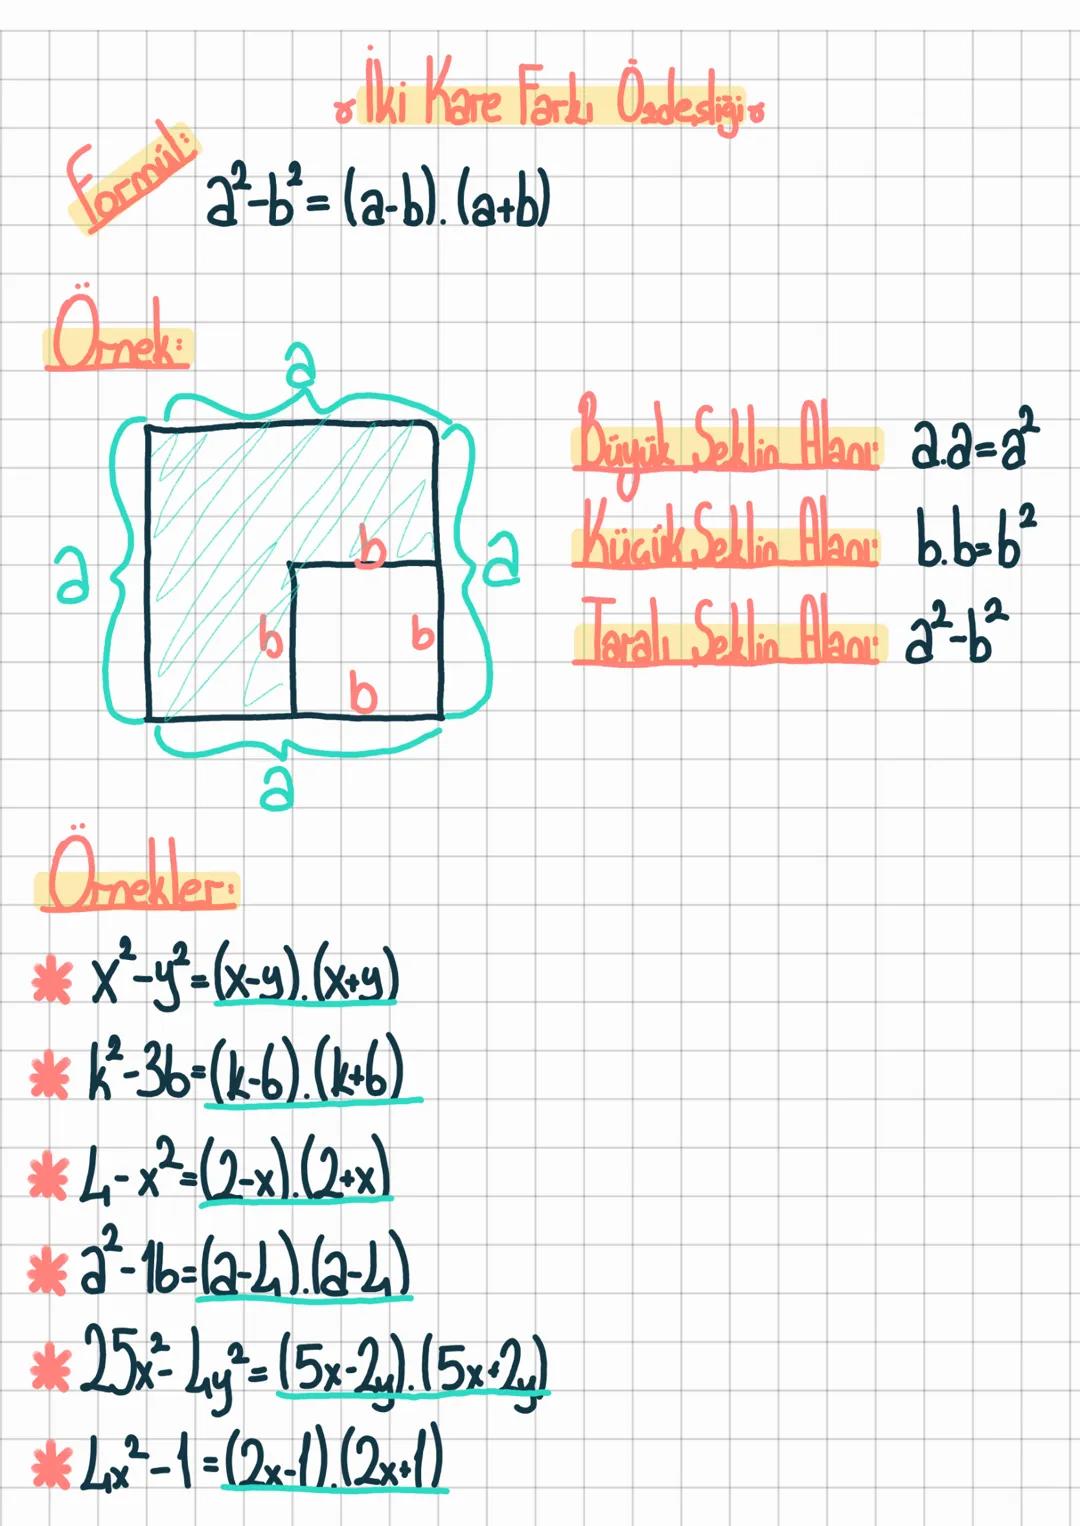 İki Kare Farkı Özdeşliği
Formül:
a²-b² = (a-b).(a+b)
Örnek:
a
a
a
b
b
b
b
a
Büyük Şeklin Alanı: a.a=a²
Küçük Şeklin Alanı: b.b=b²
Taralı Şeklin Alanı: a²-b²
Örnekler:
* x²-y²=(x-y).(x+y)
* k²-36=(k-6).(k+6)
* 4-x²=(2-x).(2+x)
* a²-16=(a-4).(a-4)
* 25x²-4y²=(5x-2y).(5x+2y)
* 4x²-1=(2x-1).(2x+1)